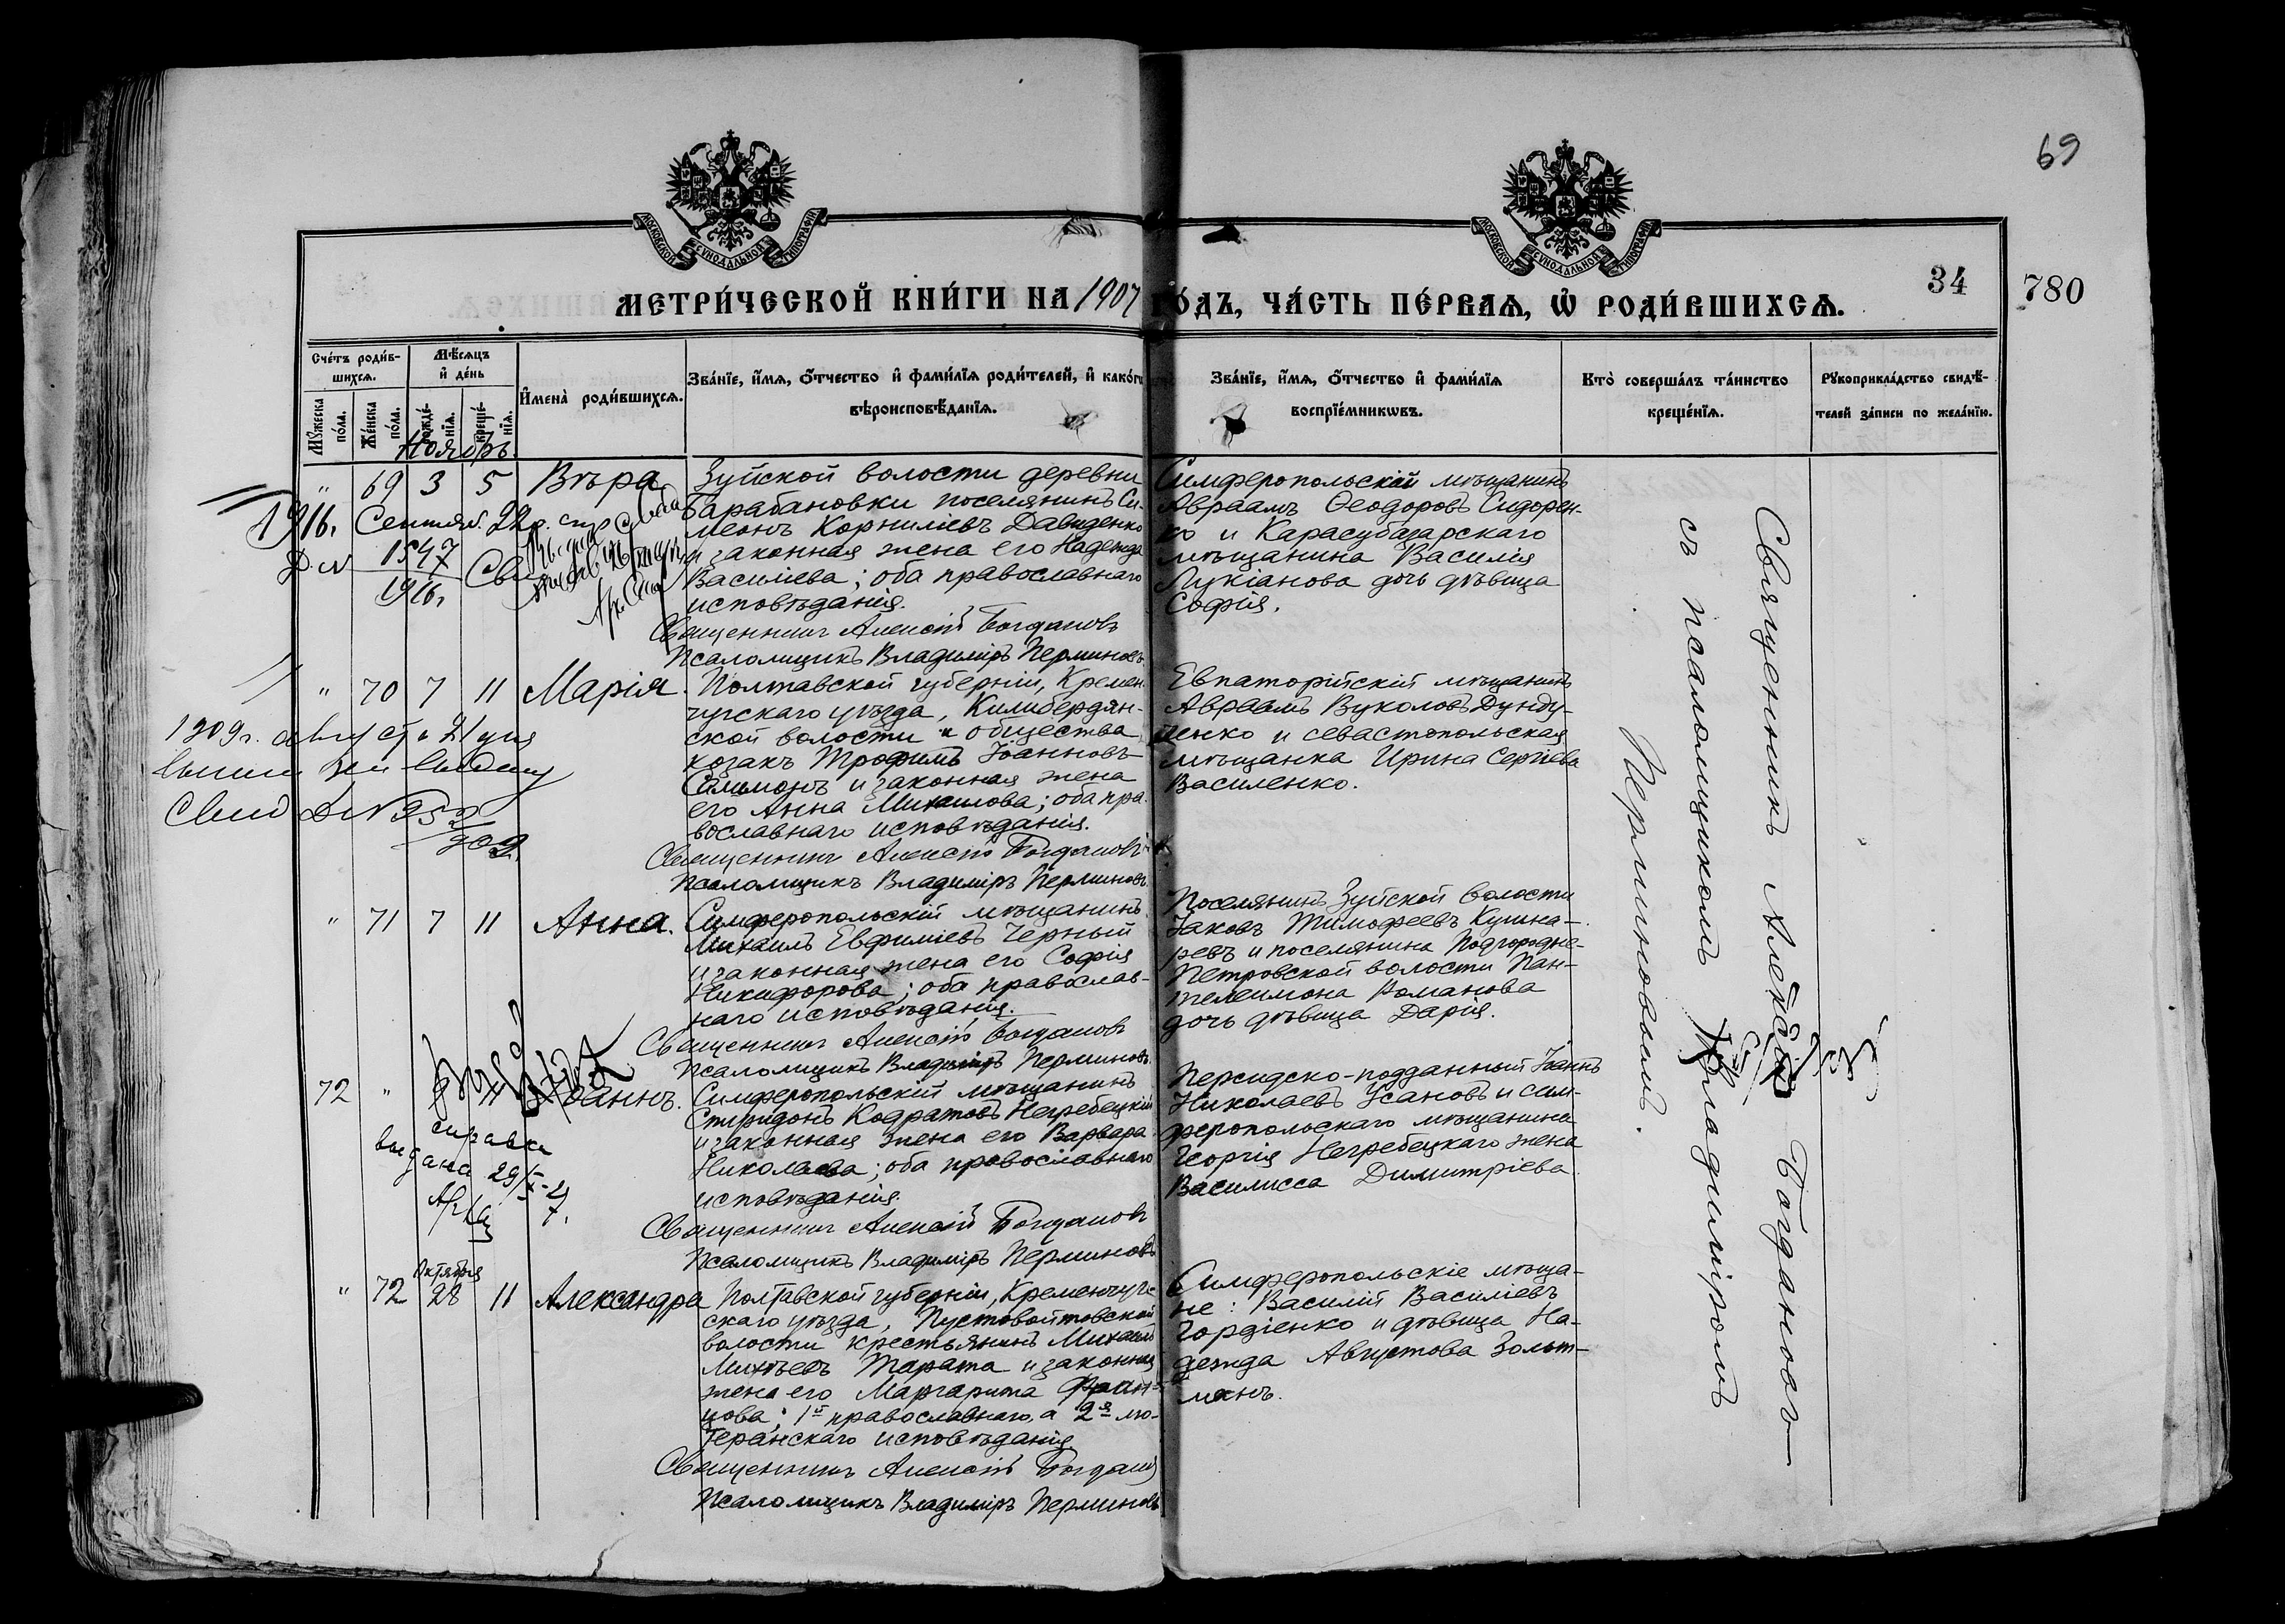 69
МОСКОВСКОЙ СѴНОДАЛЬНОЙ ТИПОГРАФІИ
МОСКОВСКОЙ СѴНОДАЛЬНОЙ ТИПОГРАФІИ
34
780
МЕТРИ́ЧЕСКОЙ КНИ́ГИ НА 1907 ГО́ДЪ, ЧА́СТЬ ПЕ́РВАѦ, Ѡ҆ РОДИ́ВШИХСѦ.
Сче́тъ роди́в-
шихсѧ.
Мꙋ́жеска по́ла.
Же́нска по́ла.
Мѣ́сѧцъ
и҆ де́нь
рожде́-
нїѧ.
креще́-
нїѧ.
И҆мена̀ роди́вшихсѧ.
Зва́нїе, и҆́мѧ, ѻ҆́тчество и҆ фами́лїѧ роди́телей, и҆ како́гѡ
вѣроисповѣ́данїѧ.
Зва́нїе, и҆́мѧ, ѻ҆́тчество и҆ фами́лїѧ
воспрїе́мникѡвъ.
Кто̀ соверша́лъ та́инство
креще́нїѧ.
Рꙋкоприкла́дство свидѣ́-
телей за́писи по жела́нїю.
Ноябрь.
" 69 3 5 Вѣра
Зуйской волости деревни
Барабановки поселянинъ Си-
меонъ Корниліевъ Давиденко
и законная жена его Надежда
Василіева; оба православнаго
исповѣданія.
Священникъ Алексій Богдановъ
Псаломщикъ Владиміръ Перминовъ.
Симферопольскій мѣщанинъ
Авраамъ Ѳеодоровъ Сидорен-
ко и Карасубазарскаго
мѣщанина Василія
Лукіанова дочь дѣвица
Софія.
1916. Сентяб. 22
1547
1916.
" 70 7 11 Марія.
Полтавской губерніи, Кремен-
чугскаго уѣзда, Килибердян-
ской волости и общества
козакъ Трофимъ Іоанновъ
и законная жена
его Анна Михаилова; оба пра-
вославнаго исповѣданія.
Священникъ Алексій Богдановъ
Псаломщикъ Владиміръ Перминовъ.
Евпаторійскій мѣщанинъ
Авраамъ Вуколовъ Дунду-
ченко и севастопольская
мѣщанка Ирина Сергіева
Василенко.
1909г. августа 21 дня
Свид № 952
909.
" 71 7 11 Анна.
Симферопольскій мѣщанинъ
Михаилъ Евфиміевъ Черный
и законная жена его Софія
Никифорова; оба православ-
наго исповѣданія.
Священникъ Алексій Богдановъ
Псаломщикъ Владиміръ Перминовъ.
Поселянинъ Зуйской волости
Іаковъ Тимофеевъ Кушна-
ревъ и поселянина Подгородне-
Петровской волости Пан-
телеимона Романова
дочь дѣвица Дарія.
72 " Іоаннъ.
Симферопольскій мѣщанинъ
Спиридонъ Кодратовъ Негребецкій
и законная жена его Варвара
Николаева; оба православнаго
исповѣданія.
Священникъ Алексій Богдановъ
Псаломщикъ Владиміръ Перминовъ
Персидско-подданный Іоаннъ
Николаевъ Усановъ и сим-
феропольскаго мѣщанина
Георгія Негребецкаго жена
Василисса Димитріева.
справка
выдана 29
" 72 Октября 28 11 Александра
Полтавской губерніи, Кременчуг-
скаго уѣзда, Пустовойтовской
волости крестьянинъ Михаилъ
Михѣевъ Тарата и законная
жена его Маргарита Фран-
цова; 1й православнаго, а 2я лю-
теранскаго исповѣданія.
Священникъ Алексій Богдановъ
Псаломщикъ Владиміръ Перминовъ
Симферопольскіе мѣща-
не: Василій Василіевъ
Гордіенко и дѣвица На-
дежда Августова Зольт-
манъ.
Священникъ Алексій Богдановъ
съ псаломщикомъ Владиміромъ
Перминовымъ.